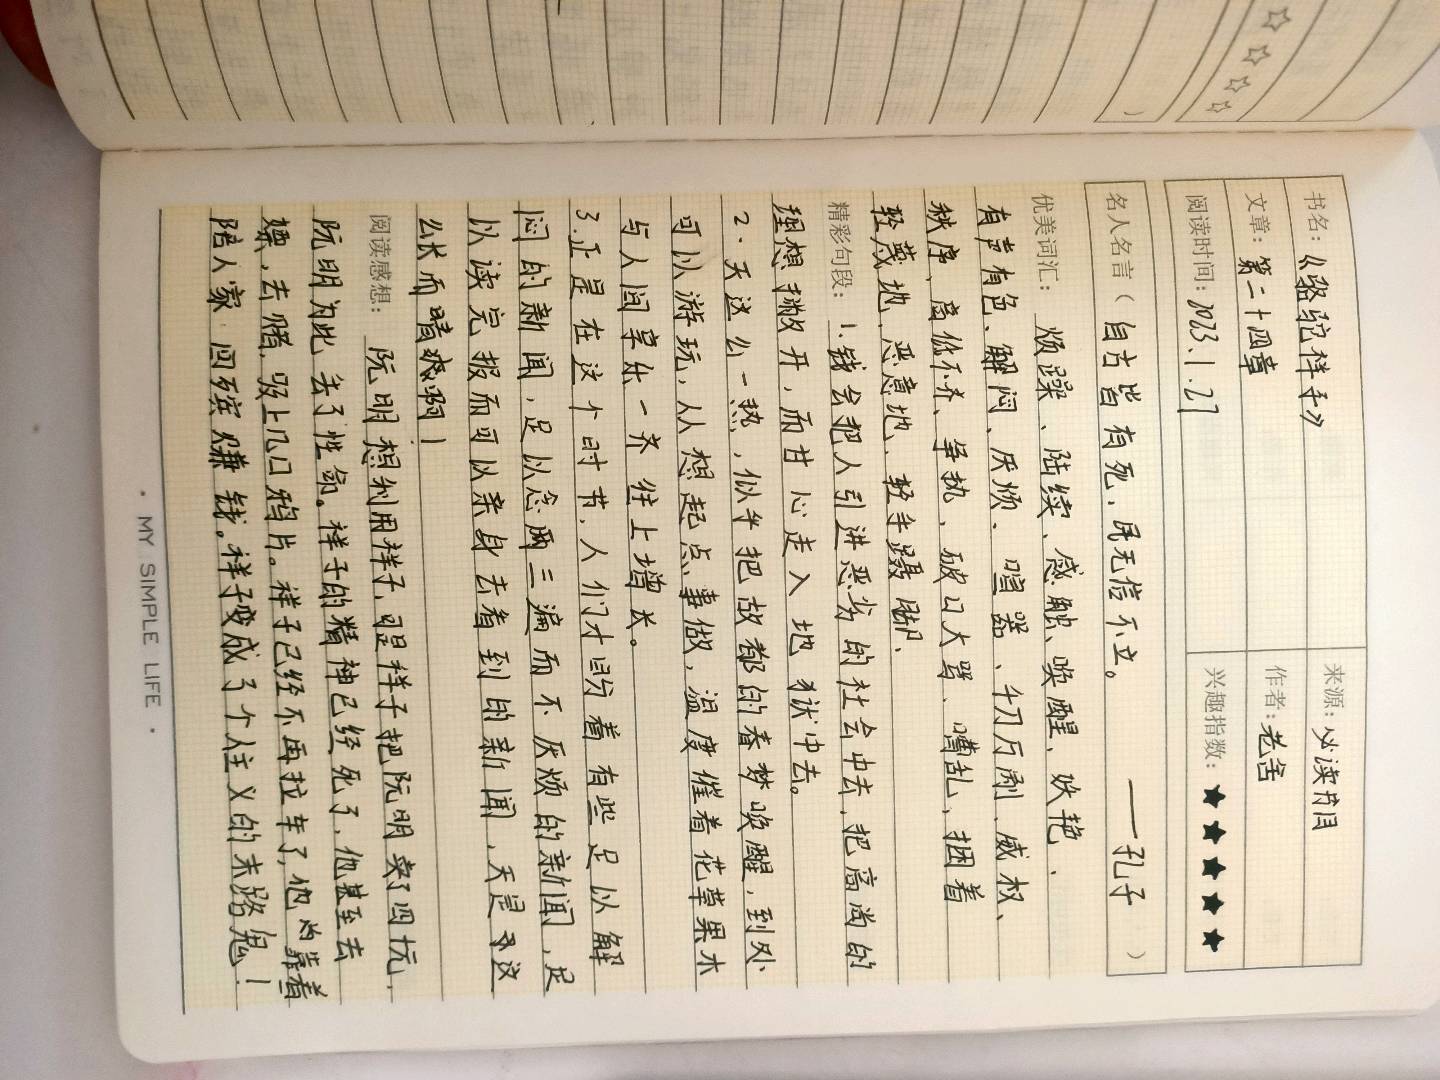 书名：《骆驼祥子》
来源：必读书目
文章：第二十四章
作者：老舍
阅读时间：2023.1.27
兴趣指数：★★★★★
名人名言（自古皆有死，民无信不立。——孔子）
优美词汇：烦躁、陆续、感触、唤醒、妖艳、
有声有色、解闷、厌烦、喧嚣、千刀万剐、威权、
秩序、高低不齐、争执、破口大骂、嘈乱、捆着
轻蔑地、恶意地、轻手蹑脚、
精彩句段：1.钱会把人引进恶劣的社会中去，把高尚的
理想撇开，而甘心走入地狱中去。
2.天这么一热，似乎把故都的春梦唤醒，到处
可以游玩，人人想起点事做，温度催着花草果木
与人间享乐一齐往上增长。
3.正是在这个时节，人们才盼着有些足以解
闷的新闻，足以念两三遍而不厌烦的新闻，足
以读完报而可以亲身去看到的新闻，天是多这
么长而晴爽啊！
阅读感想：阮明想利用祥子，可是祥子把阮明卖了四块，
阮明为此丢了性命。祥子的精神已经死了，他甚至去
嫖，去赌，吸上几口鸦片。祥子已经不再拉车了，他靠着
陪人家回殡赚钱。祥子变成了个人主义的末路鬼！
· MY SIMPLE LIFE ·